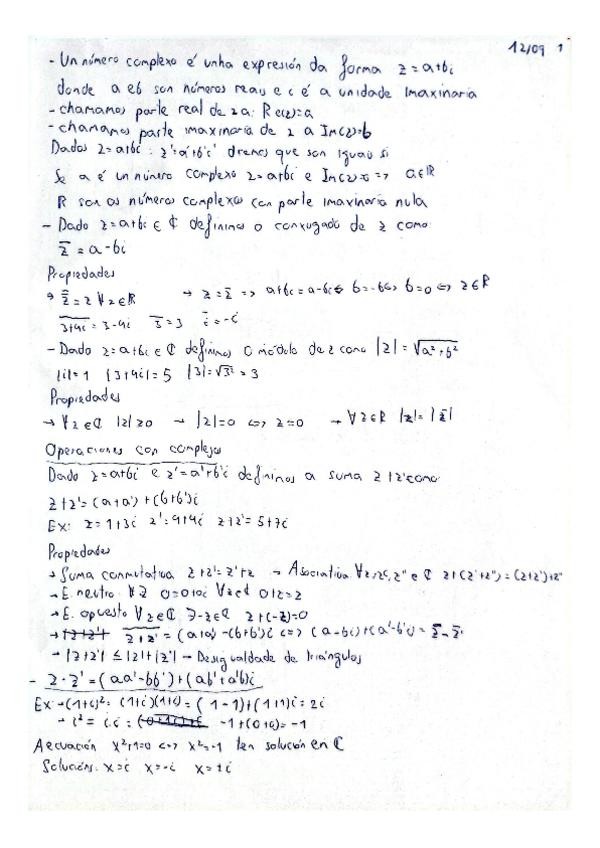 12/09 1
- Un número complexo é unha expresión da forma z=a+bi
donde a e b son números reais e i é a unidade imaxinaria
- chamamos parte real de z a: Re(z)=a
- chamamos parte imaxinaria de z a Im(z)=b
Dados z=a+bi z'=a'+b'i diremos que son iguais si
Se a é un número complexo z=a+bi e Im(z)=0 => a∈R
R son os números complexos con parte imaxinaria nula
- Dado z=a+bi ∈ ℂ definimos o conxugado de z como
z̄ = a-bi
Propiedades
→ z̿ = z ∀z∈R → z=z̄ => a+bi=a-bi <=> b=-b <=> b=0 <=> z∈R
3+4i = 3-4i 3̄=3 ī=-i
- Dado z=a+bi ∈ ℂ definimos o módulo de z como |z|=√a²+b²
|i|=1 |3+4i|=5 |3|=√3²=3
Propiedades
→ ∀z∈ℂ |z|≥0 → |z|=0 <=> z=0 → ∀z∈R |z|=|z̄|
Operaciones con complejos
Dado z=a+bi e z'=a'+b'i definimos a suma z+z' como
z+z'=(a+a')+(b+b')i
Ex: z=1+3i z'=4+4i z+z'=5+7i
Propiedades
→ Suma conmutativa z+z'=z'+z → Asociativa ∀z,z',z'' ∈ ℂ z+(z'+z'')=(z+z')+z''
→ E. neutro 0=0+0i ∀z∈ℂ 0+z=z
→ E. opuesto ∀z∈ℂ ∃-z∈ℂ z+(-z)=0
→ z+z' = (a+a')-(b+b')i <=> (a-bi)+(a'-b'i) = z̄+z̄'
→ |z+z'| ≤ |z|+|z'| → Desigualdade de triángulos
- z·z'=(aa'-bb')+(ab'+a'b)i
Ex: →(1+i)²=(1+i)(1+i)=(1-1)+(1+1)i=2i
→ i²=i·i= -1+(0+0)=-1
A ecuación x²+1=0 <=> x²=-1 ten solución en ℂ
Solución: x=i x=-i x=±i